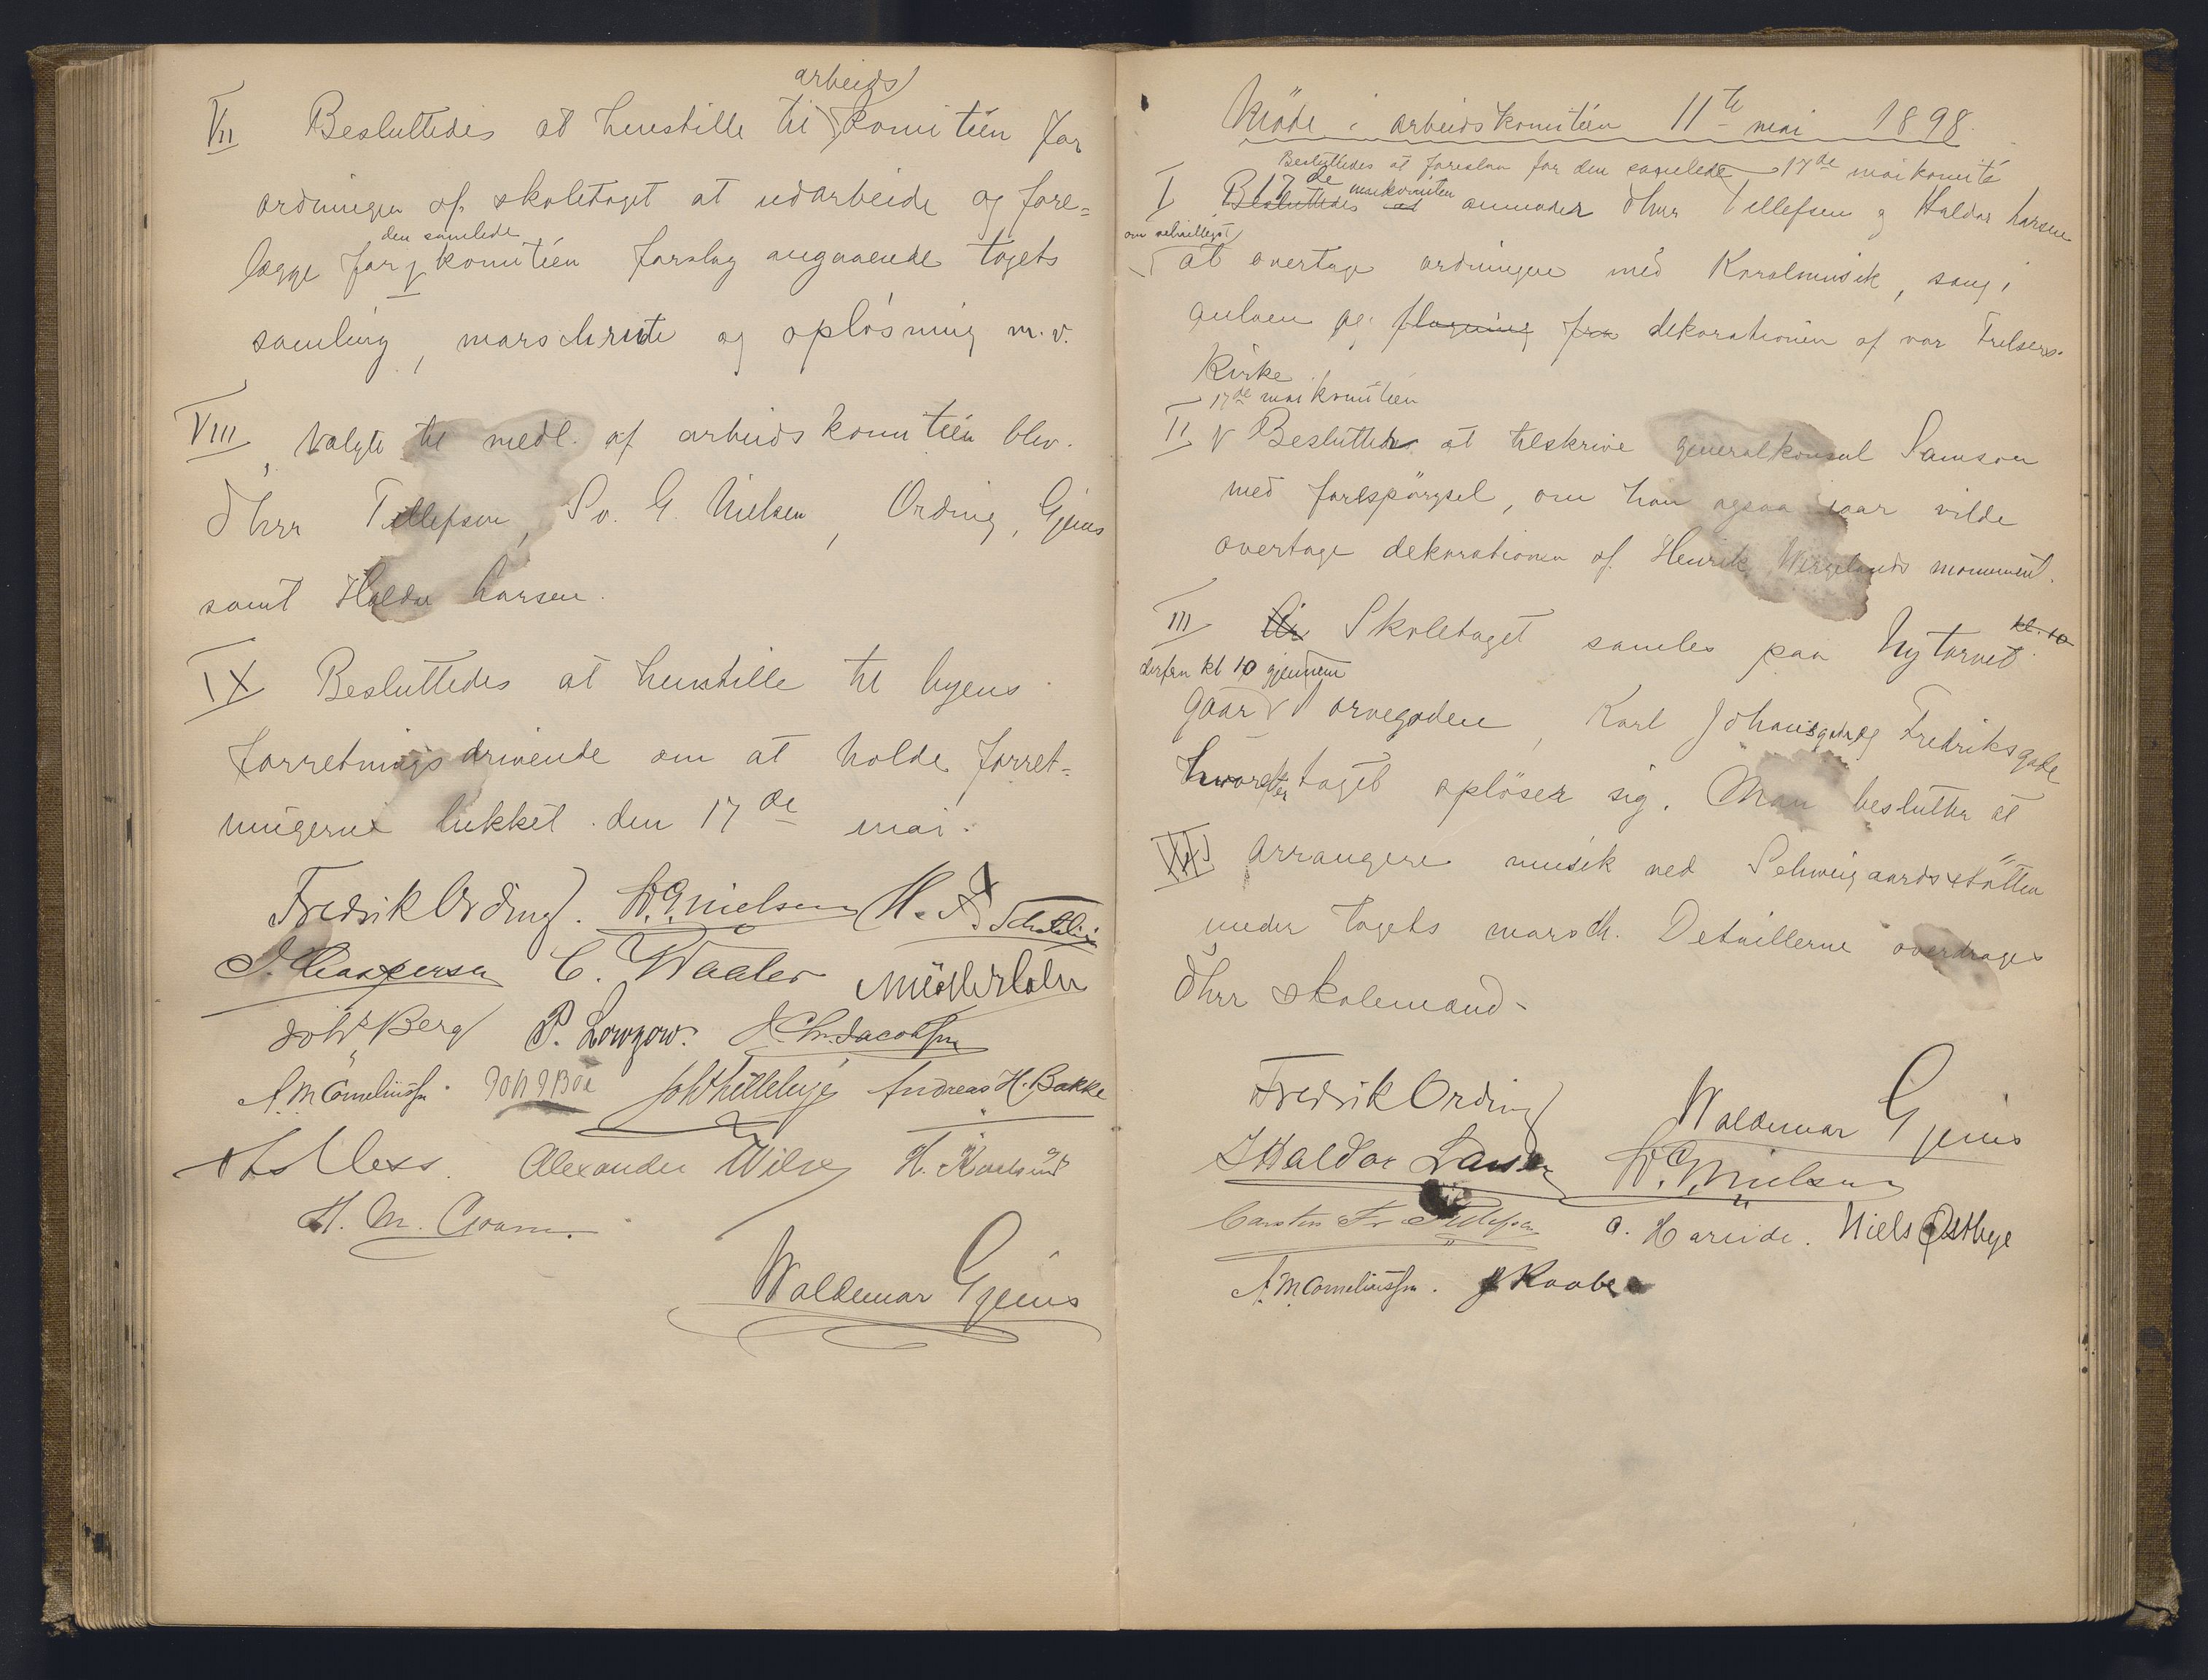 arbeids
VII Besluttedes at henstille til komitéen for
ordningen af skoletoget at udarbeide og fore=
den samlede
lægge for komitéen forslag angaaende togets
samling, marschrute og opløsning m.v.
VIII Valgte til medl. af arbeidskomitéen blev
dhrr Tellefsen, Sv. G. Nielsen, Ording, Gjems
samt Haldor Larsen.
IX Besluttedes at henstille til byens
forretningsdrivende om at holde forret=
ningerne lukket den 17de mai.
Fredrik Ording. H. 
C. Waaler
Johs Berg P. Lowzow. Chr. Jacobsen
A. M. Corneliussen. Andreas H. Bakke
Alexander
H. M.
Waldemar Gjems
Möde i arbeidskomitéen 11te mai 1898.
Besluttedes at foreslaa for den samlede 17de mai komité
17de maikomiteen
I Besluttedes at anmoder dhrr Tellefsen og Haldor Larsen
om velvilligst
at overtage ordningen med Koralmusik, sang i
gulven og flagning fra dekorationen af vor Frelsers
Kirke
17de mai komitéen
II Beslutter at tilskrive generalkonsul Samson
med forespörgsel, om han ogsaa iaar vilde
overtage dekorationen af Henrik Wergelands monument.
kl. 10
III Skoletoget samles paa Nytorvet
derfra kl 10 gjennem
gaar Torvegaden, Karl Johansgade og Fredriksgade
hvorefter toget oplöser sig. Man beslutter at
arrangere musik ved Schweigaardsstötten
under togets marsch. Detaillerne overdrages
dhrr skolemænd.
Fredrik Ording Waldemar Gjems
Haldor Larsen Sv. G. Nielsen
Carsten Tellefsen O. Hareide. Niels Østbye
A. M. Corneliussen. Raabe